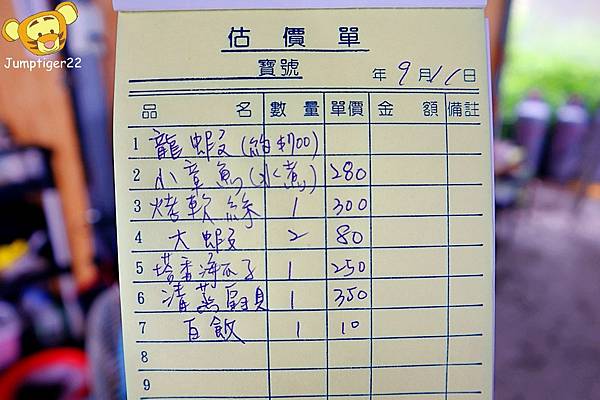 Jumptiger22
估價單
寶號 年 9 月 11 日
品 名 數 量 單價 金 額 備註
1 龍蝦(約$700)
2 小章魚(水煮) 280
3 烤軟絲 1 300
4 大蝦 2 80
5 塔香海瓜子 1 250
6 清蒸扇貝 1 350
7 白飯 1 10
8
9